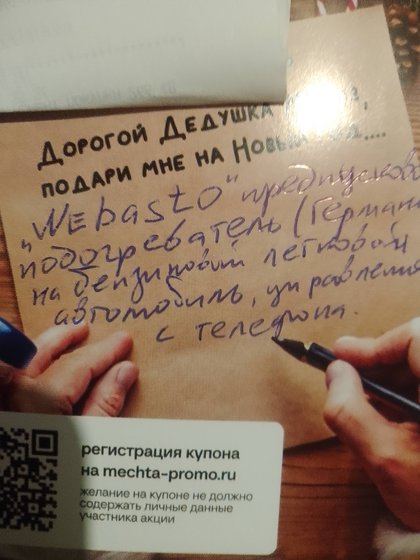 Дорогой Дедушка
подари мне на Новый
„Webasto" предпусково
подогреватель (Герман
на бензиновый легковой
автомобиль, управления
с телефона.
регистрация купона
на mechta-promo.ru
желание на купоне не должно
содержать личные данные
участника акции